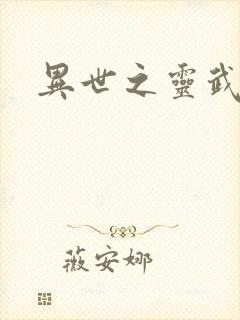 異世之靈武
薇安娜